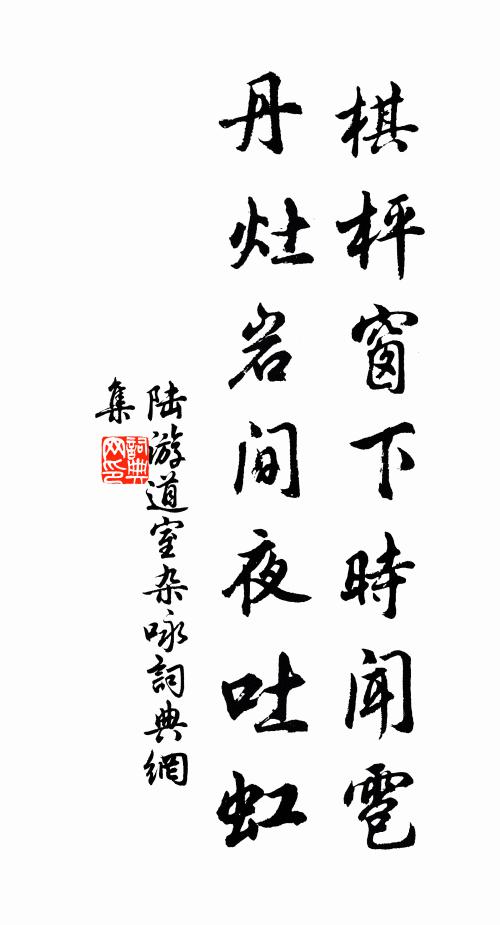 棋枰窗下時聞雹
丹灶岩間夜吐虹
陆游道室杂咏詞典網
集
詞典网印